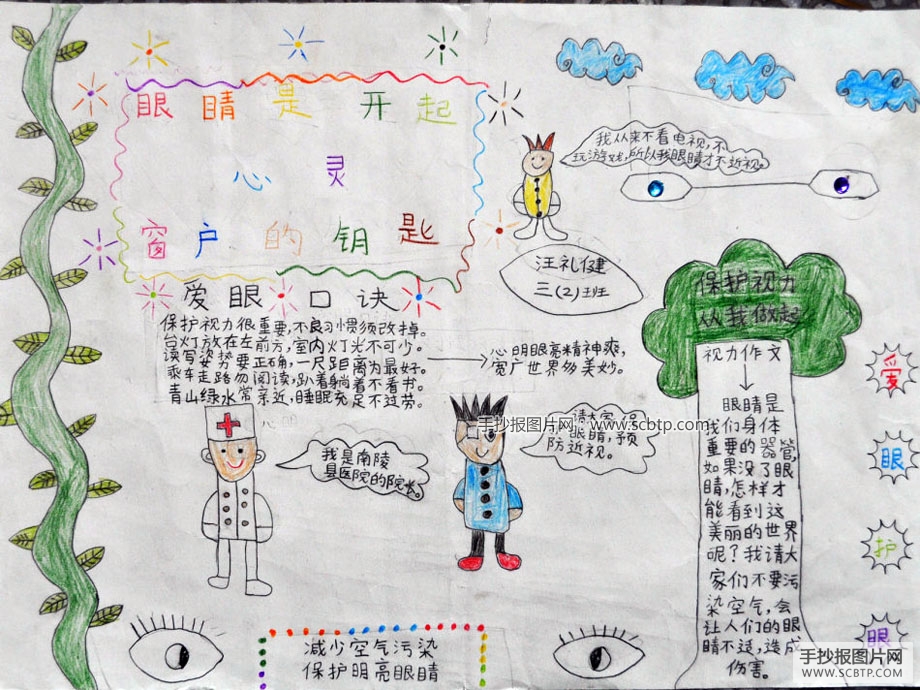 眼睛是开起
心灵
窗户的钥匙
爱眼口诀
保护视力很重要,不良习惯须改掉。
台灯放在左前方,室内灯光不可少。
读写姿势要正确,一尺距离为最好。
乘车走路勿阅读,趴着躺着不看书。
青山绿水常亲近,睡眠充足不过劳。
心明眼亮精神爽,
宽广世界多美妙。
我从来不看电视,不
玩游戏,所以我眼睛才不近视。
汪礼健
三(2)班
我是南陵
县医院的院长。
请大家保
眼睛,预
防近视。
手抄报图片网 www.scbtp.com
保护视力
从我做起
视力作文
眼睛是
我们身体
重要的器管,
如果没了眼
睛,怎样才
能看到这
美丽的世界
呢?我请大
家们不要污
染空气,会
让人们的眼
睛不适,造成
伤害。
爱
眼
护
眼
减少空气污染
保护明亮眼睛
手抄报图片网
WWW.SCBTP.COM